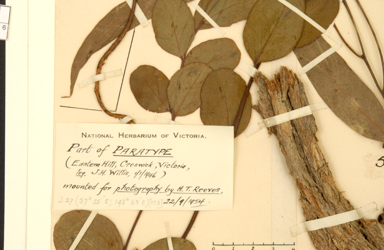 NATIONAL HERBARIUM OF VICTORIA.
Part of PARATYPE
(Eastern Hill, Creswick, Victoria,
leg. J.H. Willis, 4/1946)
mounted for photography by H.T. Reeves.
22/9/1954
5